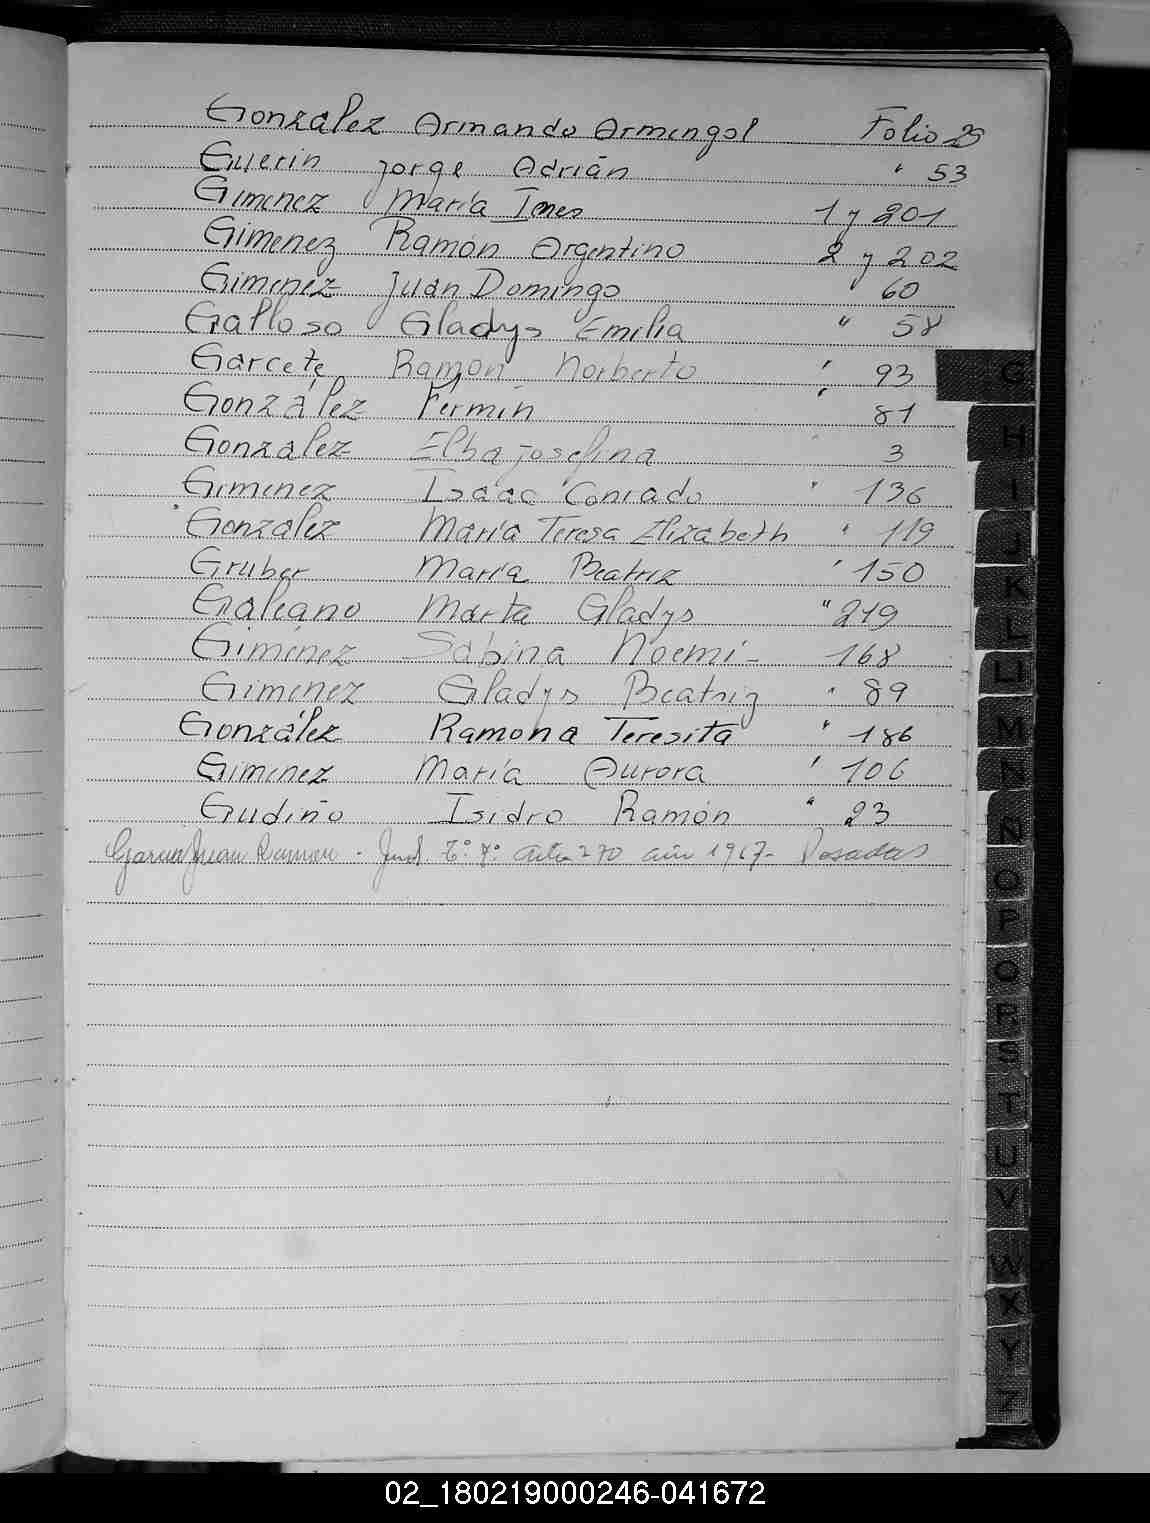 González Armando Armengol Folio 29
Guerin Jorge Adrián " 53
Gimenez María Ines 1 y 201
Gimenez Ramón Argentino 2 y 202
Gimenez Juan Domingo 60
Galloso Gladys Emilia " 58
Garcete Ramón Norberto " 93
González Fermín " 81
Gonzalez Elba Josefina " 3
Gimenez Isaac Conrado " 136
Gonzalez María Teresa Elizabeth " 119
Gruber María Beatriz " 150
Galeano Marta Gladys " 219
Giménez Sabina Noemí - 168
Gimenez Gladys Beatriz " 89
González Ramona Teresita " 186
Gimenez María Aurora " 106
Gudiño Isidro Ramón " 23
Garcia Juan Ramon - Tº 7º acta 270 año 1967 - Posadas
G
H
I
J
K
L
LL
M
N
Ñ
O
P
Q
R
S
T
U
V
W
X
Y
Z
02_180219000246-041672